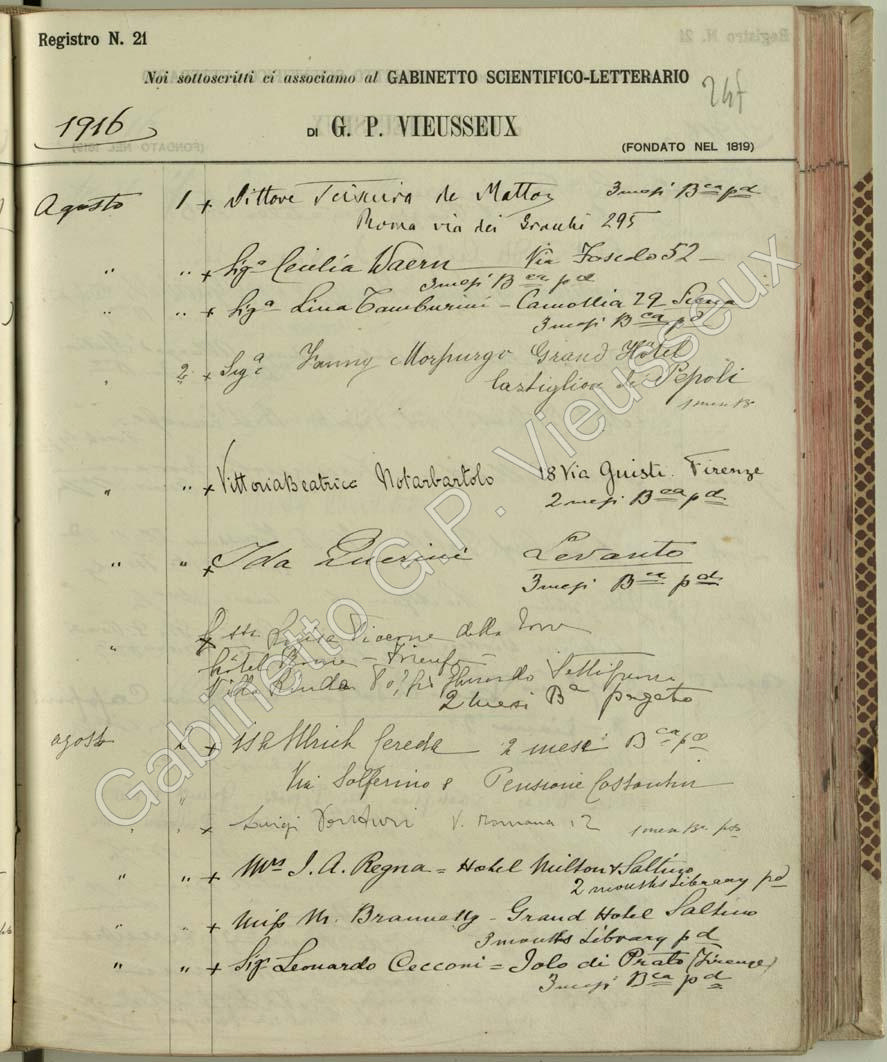 Registro N. 21
Noi sottoscritti ci associamo al GABINETTO SCIENTIFICO-LETTERARIO
247
1916
DI G. P. VIEUSSEUX
(FONDATO NEL 1819)
Agosto 1 + Vittore Teixeira de Mattos 3 mesi Bca pd
Roma via dei Gracchi 295
" " + Siga Cecilia Waern Via Foscolo 52 –
3 mesi Bca pd
" " + Siga Lina Tamburini – Camollia 29 Siena
3 mesi Bca pd
" 2 + Siga Fanny Morpurgo Grand Hôtel
Castiglione dei Pepoli
1 mese Ba
" " + Vittoria Beatrice Notarbartolo 18 Via Giusti. Firenze
2 mesi Bca pd
" " + Ida Querini Levanto
3 mesi Bca pd
" Luisa della
Hôtel – Firenze –
Villa Gherardo Settignano
2 mesi Ba pagato
agosto 2 + Ulrich Cereda 2 mesi Bca pd
Via Solferino 8 Pensione Costantini
" " + Luigi V. Romana 12 1 mese Ba pd
" " + Mrs J. A. Regna = Hotel Milton Saltino
2 months Library pd
" " + Miss M. – Grand Hotel Saltino
3 months Library pd
" " + Sigr Leonardo Cecconi = Iolo di Prato (Firenze)
3 mesi Bca pd
Gabinetto G.P. Vieusseux